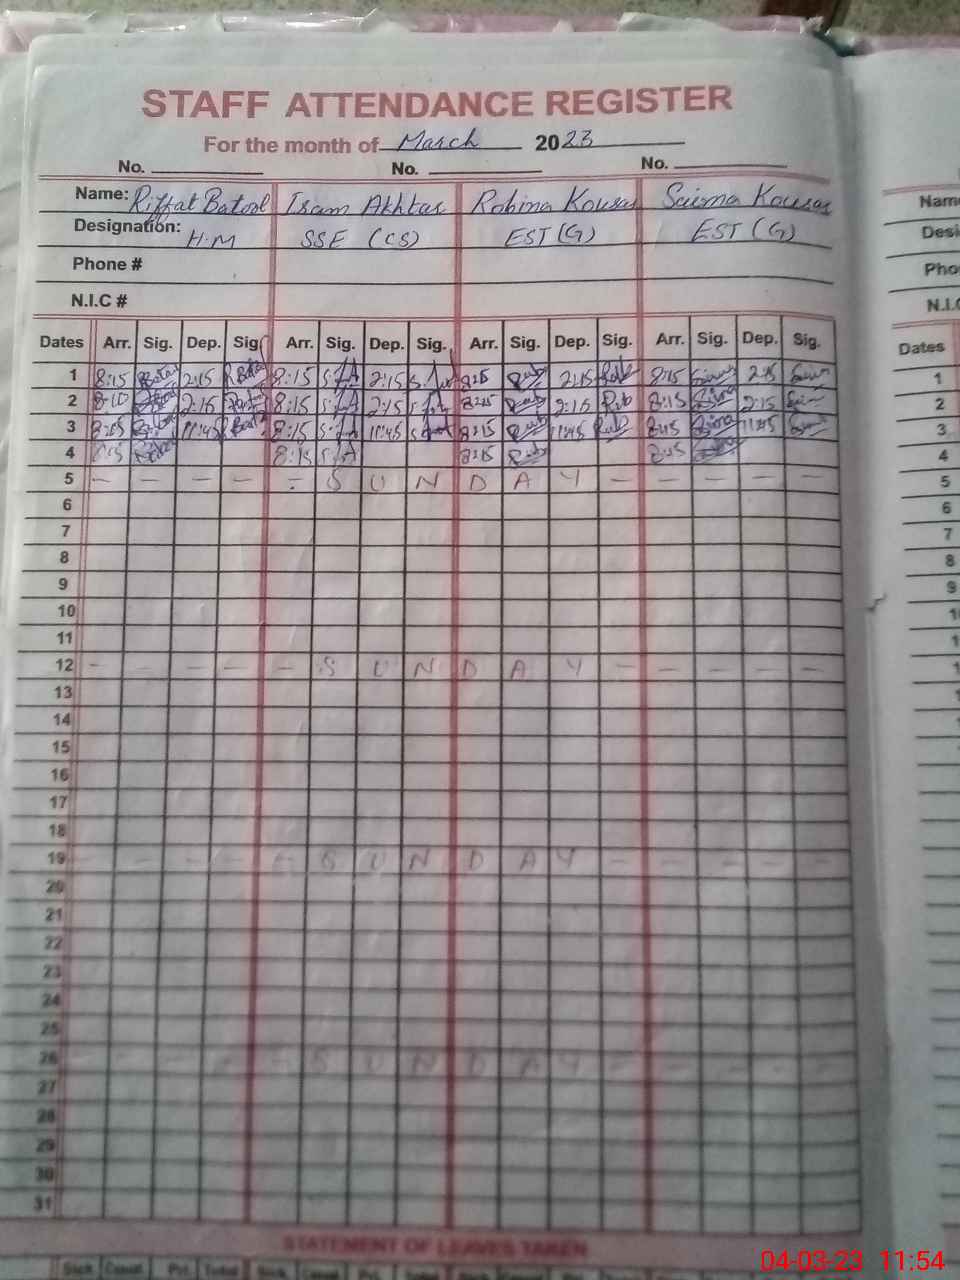 STAFF ATTENDANCE REGISTER
For the month of March 2023
No. No. No.
Name: Riffat Batool Iram Akhtar Robina Kousar Saima Kousar
Designation: H.M SSE (CS) EST (G) EST (G)
Phone #
N.I.C #
Dates Arr. Sig. Dep. Sig. Arr. Sig. Dep. Sig. Arr. Sig. Dep. Sig. Arr. Sig. Dep. Sig.
1 8:15 2:15 8:15 2:15 8:15 2:15 8:15 2:15
2 8:10 2:15 8:15 2:15 8:15 2:15 8:15 2:15
3 8:15 11:45 8:15 11:45 8:15 11:45 8:15 11:45
4 8:15 8:15 8:15 8:15
5 - - - - - S U N D A Y - - - - -
6
7
8
9
10
11
12 - - - - - S U N D A Y - - - - -
13
14
15
16
17
18
19 - - - - - S U N D A Y - - - - -
20
21
22
23
24
25
26 - - - - - S U N D A Y - - - - -
27
28
29
30
31
STATEMENT OF LEAVES TAKEN
Name
Desi
Pho
N.I.C
Dates
1
2
3
4
5
6
7
8
9
04-03-23 11:54